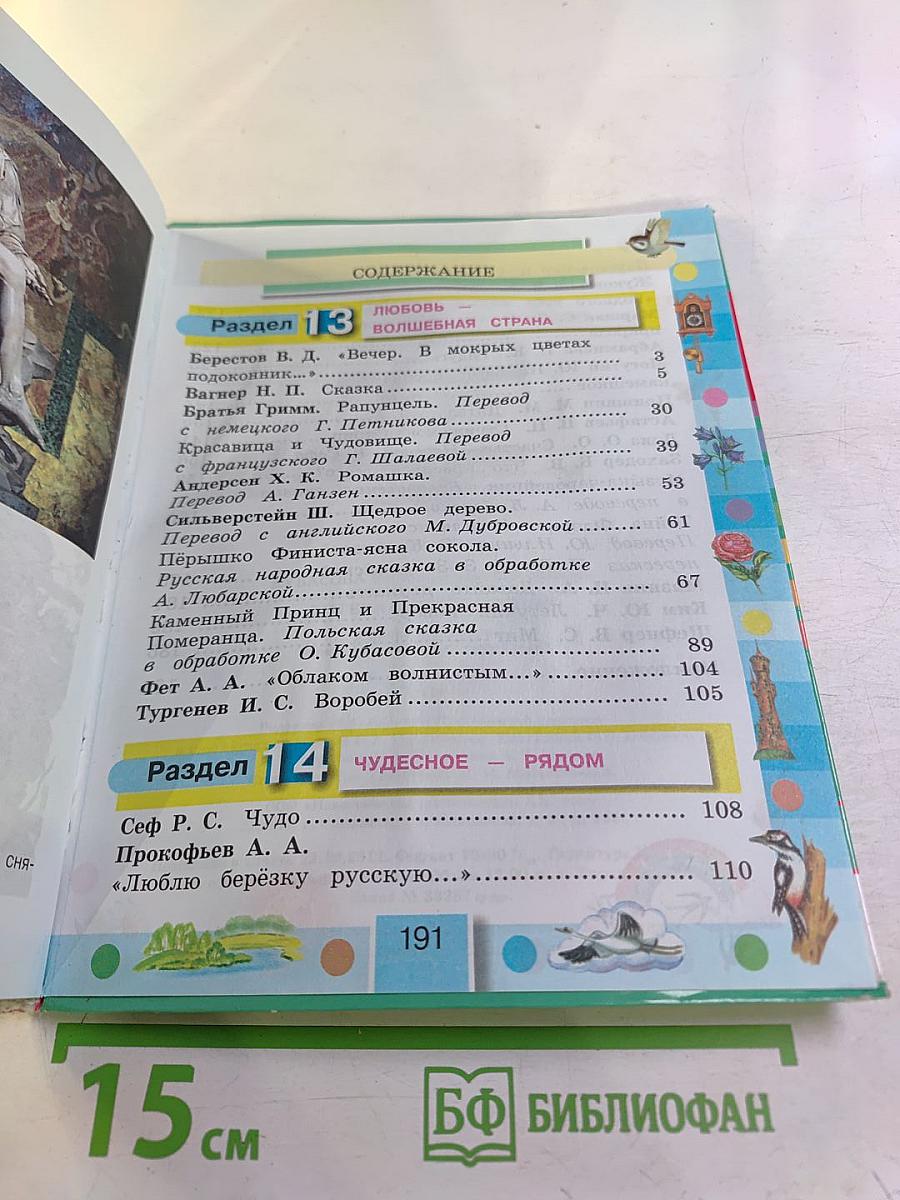 СОДЕРЖАНИЕ
Раздел 13 ЛЮБОВЬ —
ВОЛШЕБНАЯ СТРАНА
Берестов В. Д. «Вечер. В мокрых цветах
подоконник...» 3
Вагнер Н. П. Сказка 5
Братья Гримм. Рапунцель. Перевод
с немецкого Г. Петникова 30
Красавица и Чудовище. Перевод
с французского Г. Шалаевой 39
Андерсен Х. К. Ромашка.
Перевод А. Ганзен 53
Сильверстейн Ш. Щедрое дерево.
Перевод с английского М. Дубровской 61
Пёрышко Финиста-ясна сокола.
Русская народная сказка в обработке
А. Любарской 67
Каменный Принц и Прекрасная
Померанца. Польская сказка
в обработке О. Кубасовой 89
Фет А. А. «Облаком волнистым...» 104
Тургенев И. С. Воробей 105
Раздел 14 ЧУДЕСНОЕ — РЯДОМ
Сеф Р. С. Чудо 108
Прокофьев А. А.
«Люблю берёзку русскую...» 110
191
сня-
15 см
БФ БИБЛИОФАН